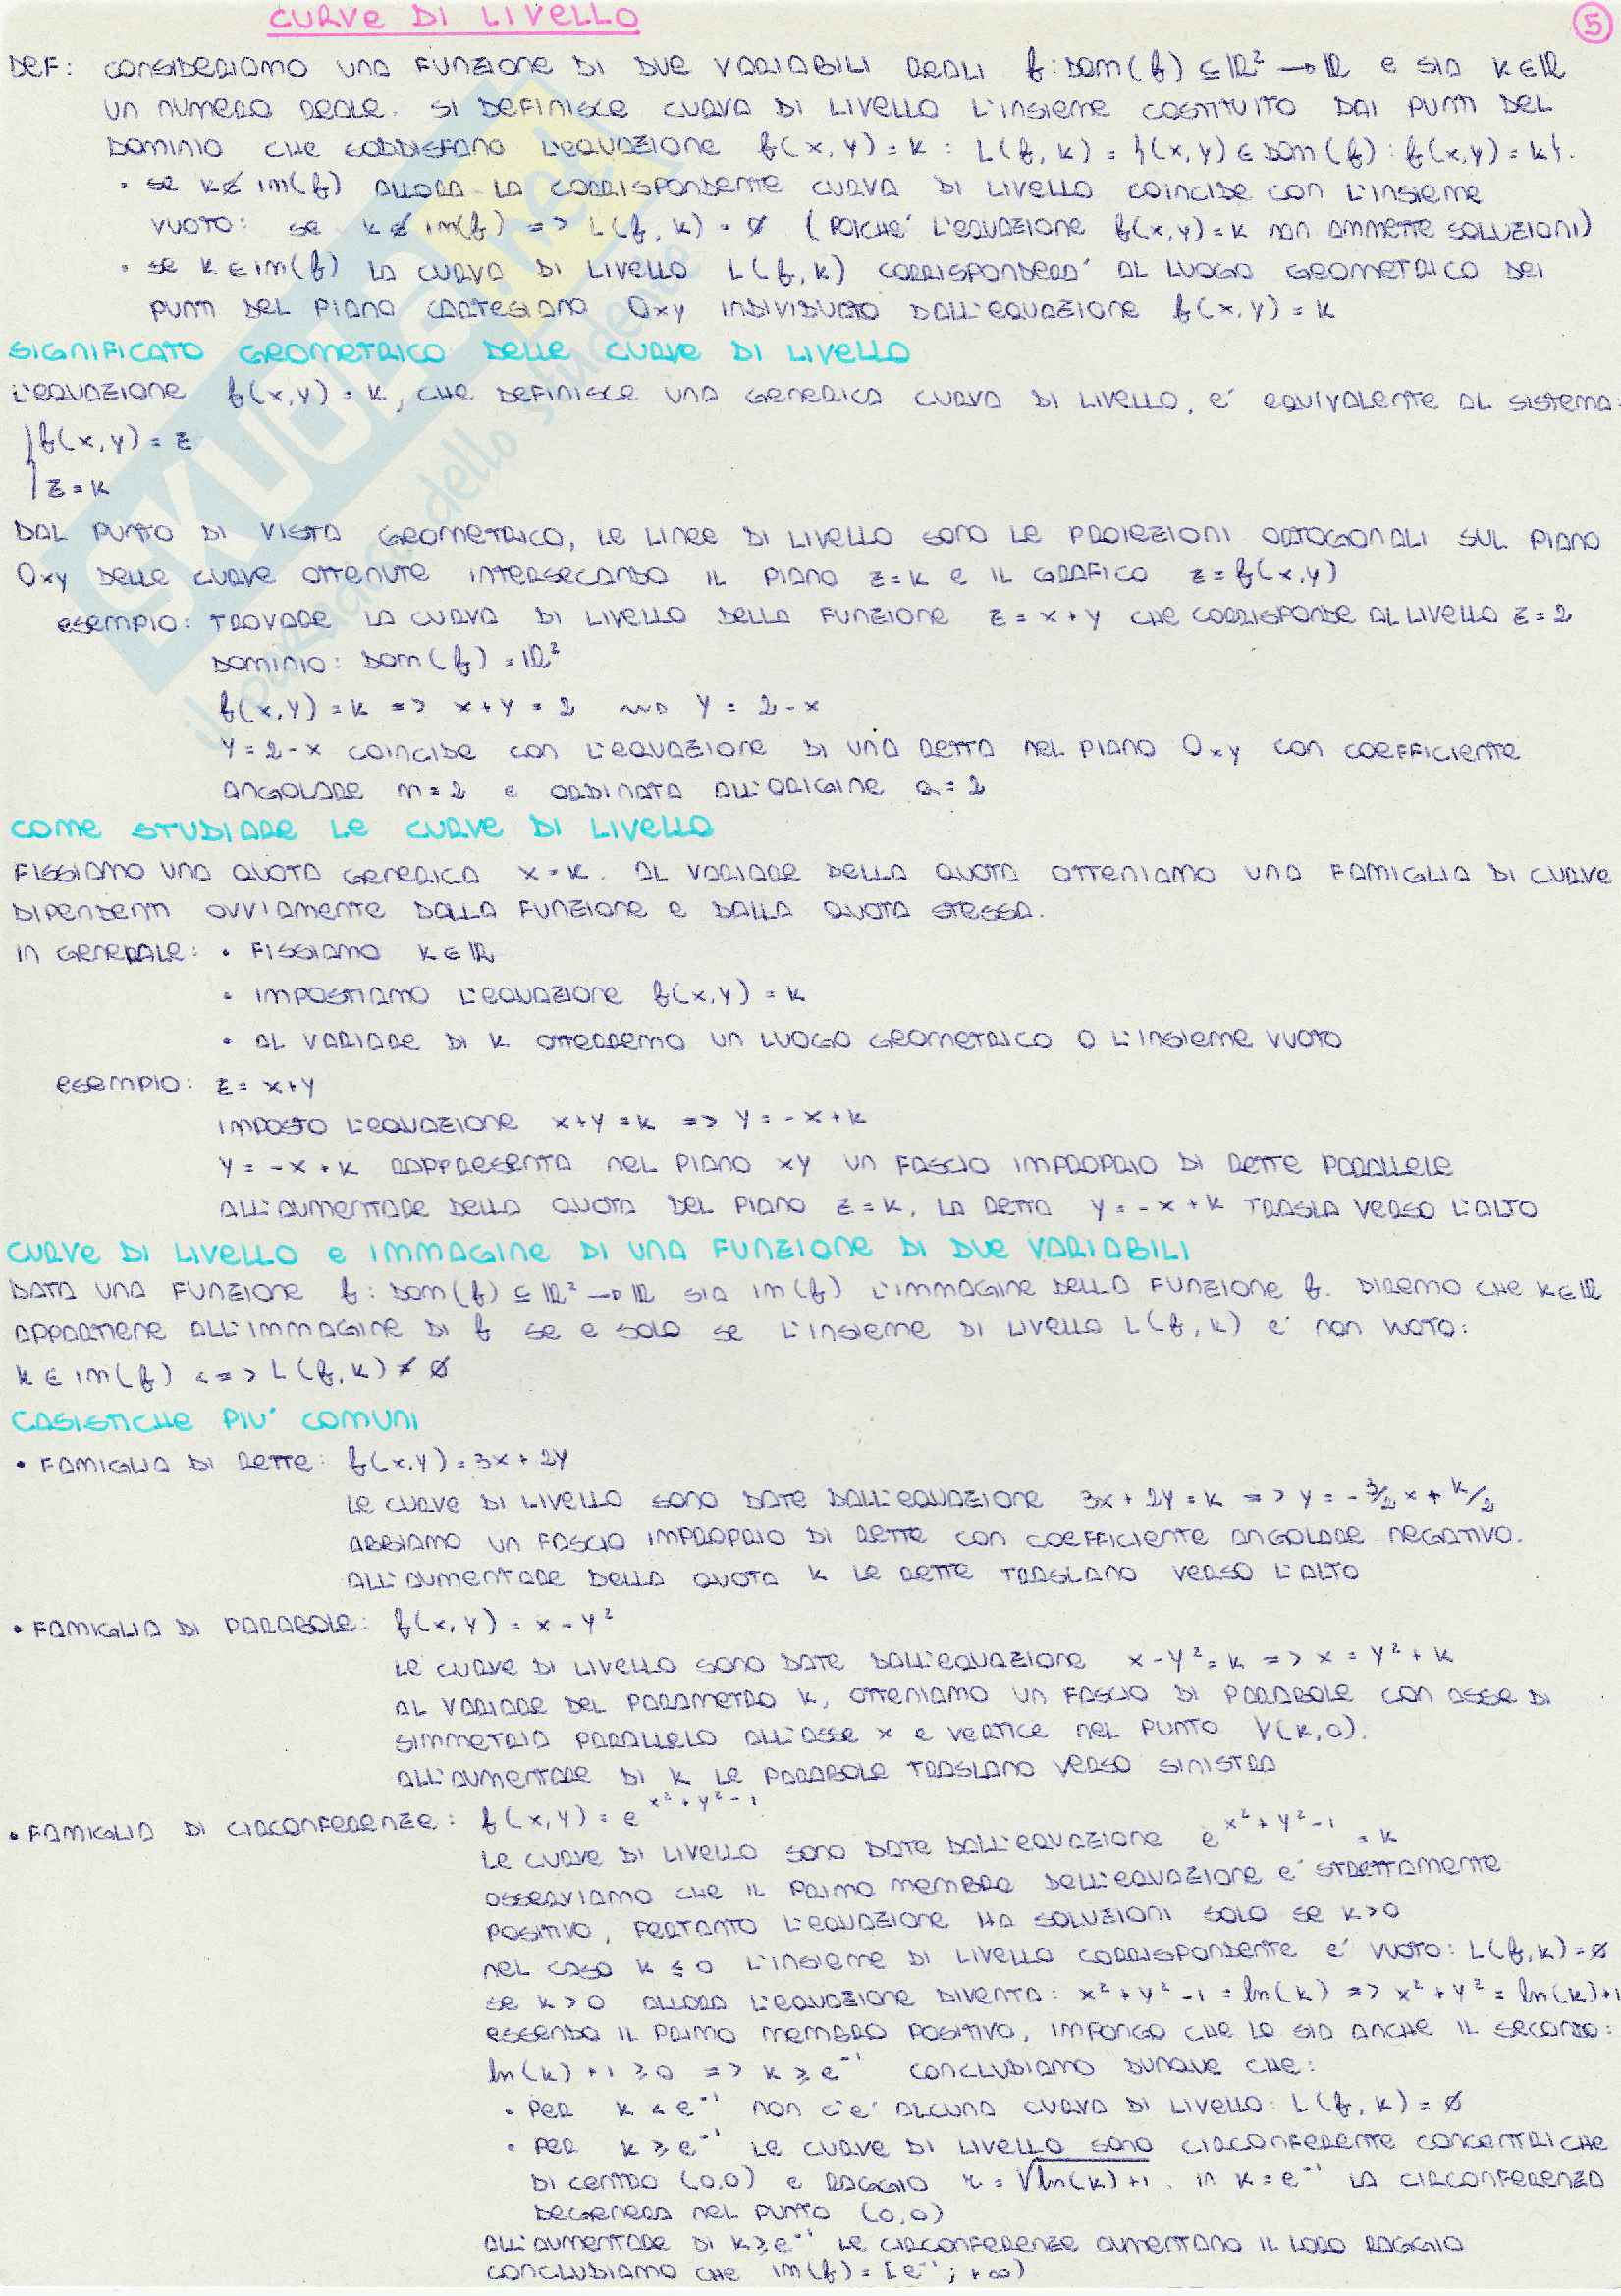 CURVE DI LIVELLO
5
DEF: CONSIDERIAMO UNA FUNZIONE DI DUE VARIABILI REALI f: DOM(f) ⊆ ℝ² → ℝ E SIA K ∈ ℝ
UN NUMERO REALE. SI DEFINISCE CURVA DI LIVELLO L'INSIEME COSTITUITO DAI PUNTI DEL
DOMINIO CHE SODDISFANO L'EQUAZIONE f(x,y) = K : L(f, K) = {(x,y) ∈ DOM(f) : f(x,y) = K}.
• SE K ∉ IM(f) ALLORA LA CORRISPONDENTE CURVA DI LIVELLO COINCIDE CON L'INSIEME
VUOTO: SE K ∉ IM(f) => L(f, K) = Ø (POICHE' L'EQUAZIONE f(x,y) = K NON AMMETTE SOLUZIONI)
• SE K ∈ IM(f) LA CURVA DI LIVELLO L(f, K) CORRISPONDERA' AL LUOGO GEOMETRICO DEI
PUNTI DEL PIANO CARTESIANO Oxy INDIVIDUATO DALL'EQUAZIONE f(x,y) = K
SIGNIFICATO GEOMETRICO DELLE CURVE DI LIVELLO
L'EQUAZIONE f(x,y) = K, CHE DEFINISCE UNA GENERICA CURVA DI LIVELLO, E' EQUIVALENTE AL SISTEMA:
{ f(x,y) = z
z = K
DAL PUNTO DI VISTA GEOMETRICO, LE LINEE DI LIVELLO SONO LE PROIEZIONI ORTOGONALI SUL PIANO
Oxy DELLE CURVE OTTENUTE INTERSECANDO IL PIANO z = K E IL GRAFICO z = f(x,y)
ESEMPIO: TROVARE LA CURVA DI LIVELLO DELLA FUNZIONE z = x + y CHE CORRISPONDE AL LIVELLO z = 2
DOMINIO: DOM(f) = ℝ²
f(x,y) = K => x + y = 2 ⇝ y = 2 - x
y = 2 - x COINCIDE CON L'EQUAZIONE DI UNA RETTA NEL PIANO Oxy CON COEFFICIENTE
ANGOLARE m = 2 E ORDINATA ALL'ORIGINE q = 2
COME STUDIARE LE CURVE DI LIVELLO
FISSIAMO UNA QUOTA GENERICA x = K. AL VARIARE DELLA QUOTA OTTENIAMO UNA FAMIGLIA DI CURVE
DIPENDENTI OVVIAMENTE DALLA FUNZIONE E DALLA QUOTA STESSA.
IN GENERALE: • FISSIAMO K ∈ ℝ
• IMPOSTIAMO L'EQUAZIONE f(x,y) = K
• AL VARIARE DI K OTTERREMO UN LUOGO GEOMETRICO O L'INSIEME VUOTO
ESEMPIO: z = x + y
IMPOSTO L'EQUAZIONE x + y = K => y = - x + K
y = - x + K RAPPRESENTA NEL PIANO xy UN FASCIO IMPROPRIO DI RETTE PARALLELE
ALL'AUMENTARE DELLA QUOTA DEL PIANO z = K, LA RETTA y = - x + K TRASLA VERSO L'ALTO
CURVE DI LIVELLO E IMMAGINE DI UNA FUNZIONE DI DUE VARIABILI
DATA UNA FUNZIONE f: DOM(f) ⊆ ℝ² → ℝ SIA IM(f) L'IMMAGINE DELLA FUNZIONE f. DIREMO CHE K ∈ ℝ
APPARTIENE ALL'IMMAGINE DI f SE E SOLO SE L'INSIEME DI LIVELLO L(f, K) E' NON VUOTO:
K ∈ IM(f) <=> L(f, K) ≠ Ø
CASISTICHE PIU' COMUNI
• FAMIGLIA DI RETTE: f(x,y) = 3x + 2y
LE CURVE DI LIVELLO SONO DATE DALL'EQUAZIONE 3x + 2y = K => y = - 3/2 x + K/2
ABBIAMO UN FASCIO IMPROPRIO DI RETTE CON COEFFICIENTE ANGOLARE NEGATIVO.
ALL'AUMENTARE DELLA QUOTA K LE RETTE TRASLANO VERSO L'ALTO
• FAMIGLIA DI PARABOLE: f(x,y) = x - y²
LE CURVE DI LIVELLO SONO DATE DALL'EQUAZIONE x - y² = K => x = y² + K
AL VARIARE DEL PARAMETRO K, OTTENIAMO UN FASCIO DI PARABOLE CON ASSE DI
SIMMETRIA PARALLELO ALL'ASSE x E VERTICE NEL PUNTO V(K,0).
ALL'AUMENTARE DI K LE PARABOLE TRASLANO VERSO SINISTRA
• FAMIGLIA DI CIRCONFERENZE: f(x,y) = e^(x² + y² - 1)
LE CURVE DI LIVELLO SONO DATE DALL'EQUAZIONE e^(x² + y² - 1) = K
OSSERVIAMO CHE IL PRIMO MEMBRO DELL'EQUAZIONE E' STRETTAMENTE
POSITIVO, PERTANTO L'EQUAZIONE HA SOLUZIONI SOLO SE K > 0
NEL CASO K ≤ 0 L'INSIEME DI LIVELLO CORRISPONDENTE E' VUOTO: L(f, K) = Ø
SE K > 0 ALLORA L'EQUAZIONE DIVENTA: x² + y² - 1 = ln(K) => x² + y² = ln(K) + 1
ESSENDO IL PRIMO MEMBRO POSITIVO, IMPONGO CHE LO SIA ANCHE IL SECONDO:
ln(K) + 1 ≥ 0 => K ≥ e⁻¹ CONCLUDIAMO DUNQUE CHE:
• PER K < e⁻¹ NON C'E' ALCUNA CURVA DI LIVELLO: L(f, K) = Ø
• PER K ≥ e⁻¹ LE CURVE DI LIVELLO SONO CIRCONFERENTE CONCENTRICHE
DI CENTRO (0,0) E RAGGIO r = √(ln(K) + 1). IN K = e⁻¹ LA CIRCONFERENZA
DEGENERA NEL PUNTO (0,0)
ALL'AUMENTARE DI K ≥ e⁻¹ LE CIRCONFERENZE AUMENTANO IL LORO RAGGIO
CONCLUDIAMO CHE IM(f) = [e⁻¹; +∞)